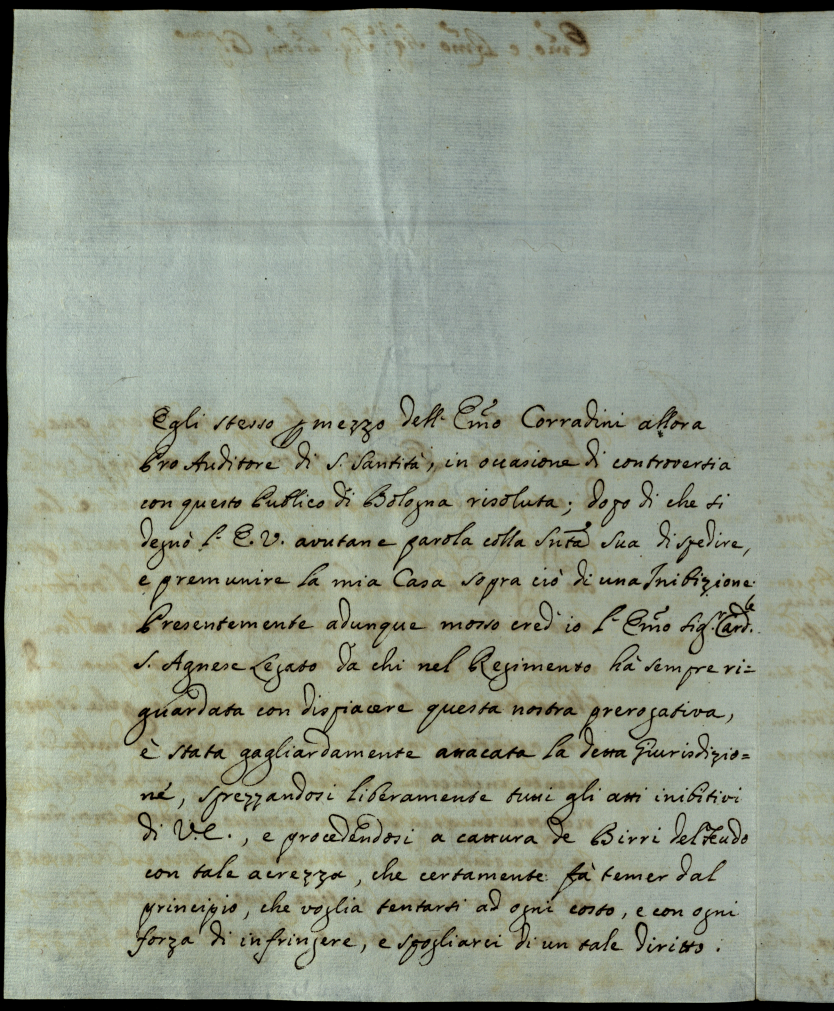 Egli stesso p mezzo dell' Emo Corradini allora
Pro Auditore di S. Santità, in occasione di controversia
con questo Publico di Bologna risoluta; dopo di che si
degnò l' E. V. avutane parola colla Sntà Sua di spedire,
e premunire la mia Casa sopra ciò di una Inibizione.
Presentemente adunque mosso cred' io l' Emo Sigr. Cardle.
S. Agnese Legato da chi nel Regimento hà sempre ri=
guardata con dispiacere questa nostra prerogativa,
è stata gagliardamente attacata la detta Giurisdizio=
ne, sprezzandosi liberamente tutti gli atti inibitivi
di V. E., e procedendosi a cattura de Birri del Feudo
con tale acrezza, che certamente fà temer dal
principio, che voglia tentarsi ad ogni costo, e con ogni
forza di infringere, e spogliarci di un tale diritto.